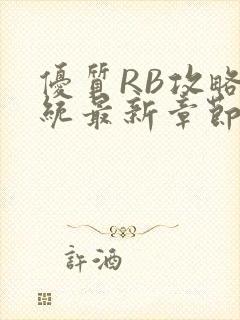 優質RB攻略
統最新章節
許酒